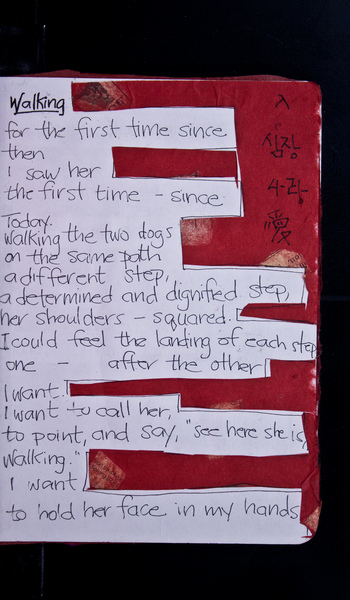 Walking
for the first time since
then
I saw her
the first time - since.
Today.
Walking the two dogs
on the same path
a different step,
a determined and dignified step,
her shoulders - squared.
I could feel the landing of each step
one - after the other
I want.
I want to call her,
to point, and say, "see here she is,
walking."
I want
to hold her face in my hands
ㅅ
심장
사랑
愛